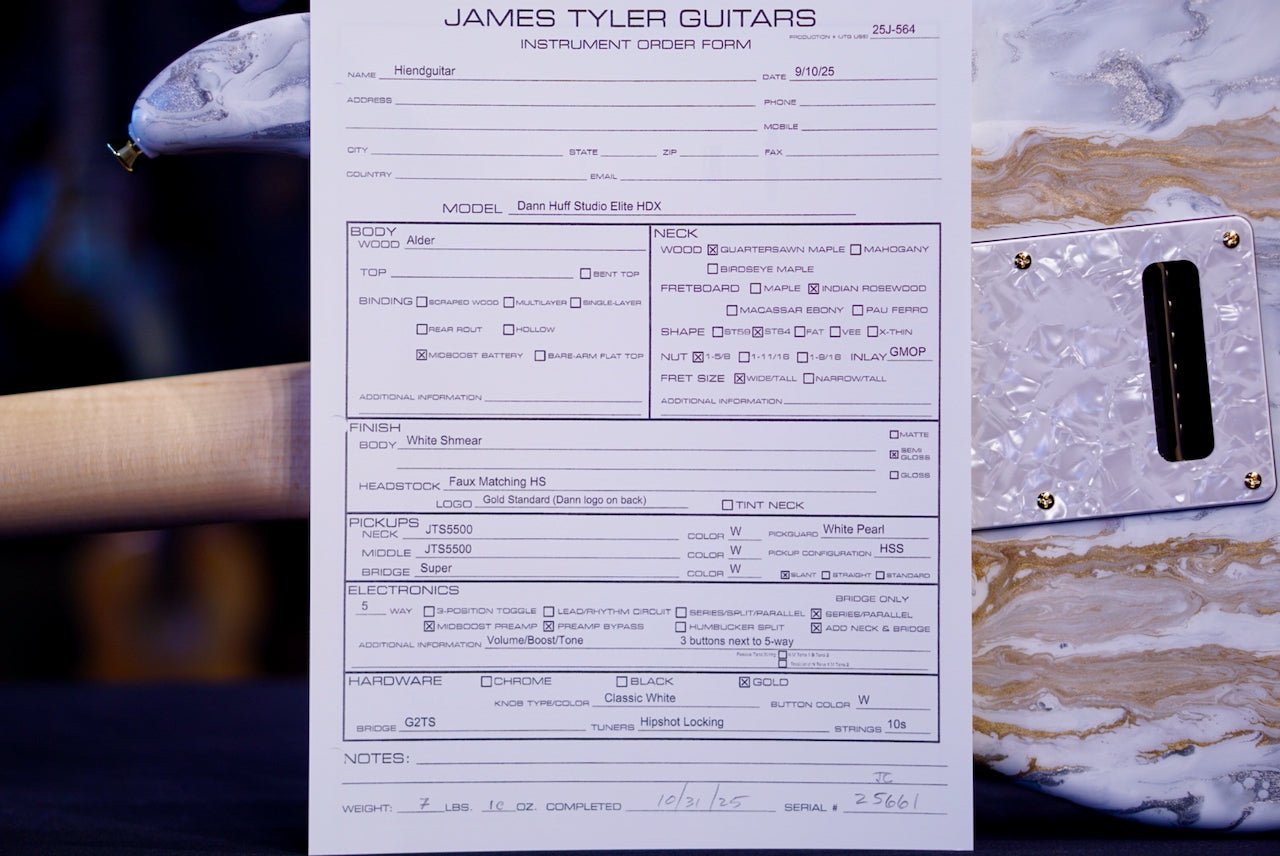 JAMES TYLER GUITARS
INSTRUMENT ORDER FORM
PRODUCTION # (JTG USE) 25J-564
NAME Hiendguitar DATE 9/10/25
ADDRESS PHONE
MOBILE
CITY STATE ZIP FAX
COUNTRY EMAIL
MODEL Dann Huff Studio Elite HDX
BODY
WOOD Alder
TOP ☐ BENT TOP
BINDING ☐ SCRAPED WOOD ☐ MULTILAYER ☐ SINGLE-LAYER
☐ REAR ROUT ☐ HOLLOW
☒ MIDBOOST BATTERY ☐ BARE-ARM FLAT TOP
ADDITIONAL INFORMATION
NECK
WOOD ☒ QUARTERSAWN MAPLE ☐ MAHOGANY
☐ BIRDSEYE MAPLE
FRETBOARD ☐ MAPLE ☒ INDIAN ROSEWOOD
☐ MACASSAR EBONY ☐ PAU FERRO
SHAPE ☐ ST59 ☒ ST64 ☐ FAT ☐ VEE ☐ X-THIN
NUT ☒ 1-5/8 ☐ 1-11/16 ☐ 1-9/16 INLAY GMOP
FRET SIZE ☒ WIDE/TALL ☐ NARROW/TALL
ADDITIONAL INFORMATION
FINISH
BODY White Shmear
☐ MATTE
☒ SEMI GLOSS
☐ GLOSS
HEADSTOCK Faux Matching HS
LOGO Gold Standard (Dann logo on back) ☐ TINT NECK
PICKUPS
NECK JTS5500 COLOR W PICKGUARD White Pearl
MIDDLE JTS5500 COLOR W PICKUP CONFIGURATION HSS
BRIDGE Super COLOR W ☒ SLANT ☐ STRAIGHT ☐ STANDARD
ELECTRONICS
BRIDGE ONLY
5 WAY ☐ 3-POSITION TOGGLE ☐ LEAD/RHYTHM CIRCUIT ☐ SERIES/SPLIT/PARALLEL ☒ SERIES/PARALLEL
☒ MIDBOOST PREAMP ☒ PREAMP BYPASS ☐ HUMBUCKER SPLIT ☒ ADD NECK & BRIDGE
ADDITIONAL INFORMATION Volume/Boost/Tone 3 buttons next to 5-way
HARDWARE ☐ CHROME ☐ BLACK ☒ GOLD
KNOB TYPE/COLOR Classic White BUTTON COLOR W
BRIDGE G2TS TUNERS Hipshot Locking STRINGS 10s
NOTES:
JC
WEIGHT: 7 LBS. 10 OZ. COMPLETED 10/31/25 SERIAL # 25661